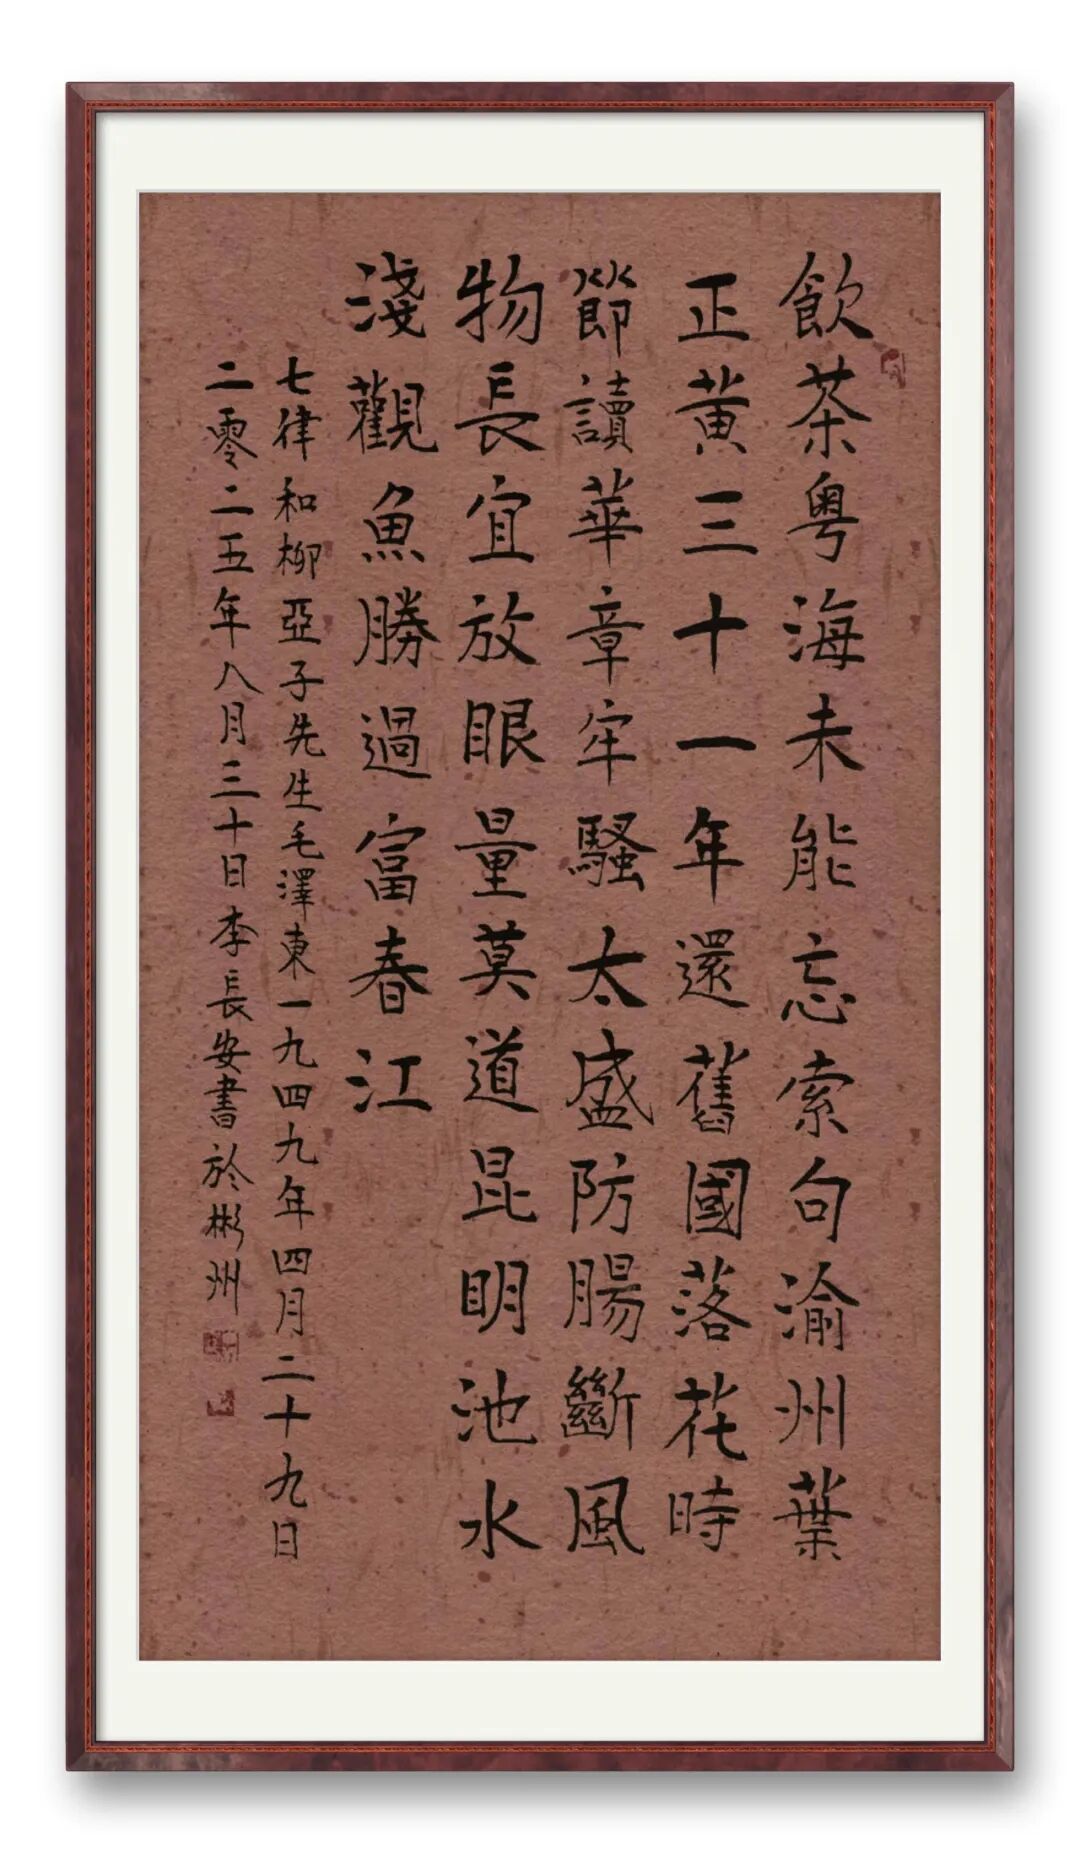 飲茶粵海未能忘索句渝州葉
正黄三十一年還舊國落花時
節讀華章牢騷太盛防腸斷風
物長宜放眼量莫道昆明池水
淺觀魚勝過富春江
七律和柳亞子先生毛澤東一九四九年四月二十九日
二零二五年八月三十日李長安書於彬州